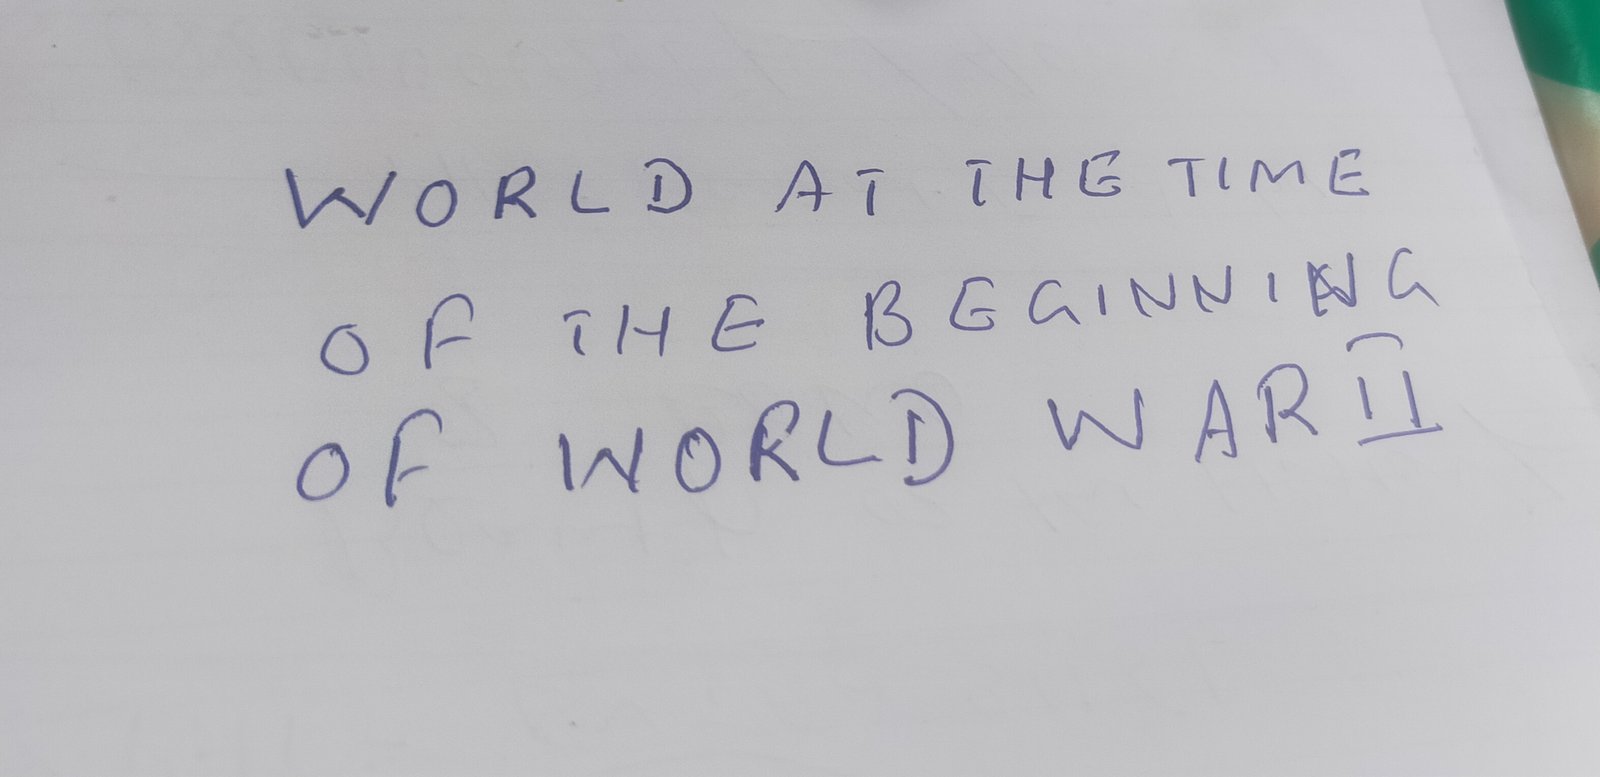 WORLD AT THE TIME
OF THE BEGINNING
OF WORLD WAR II